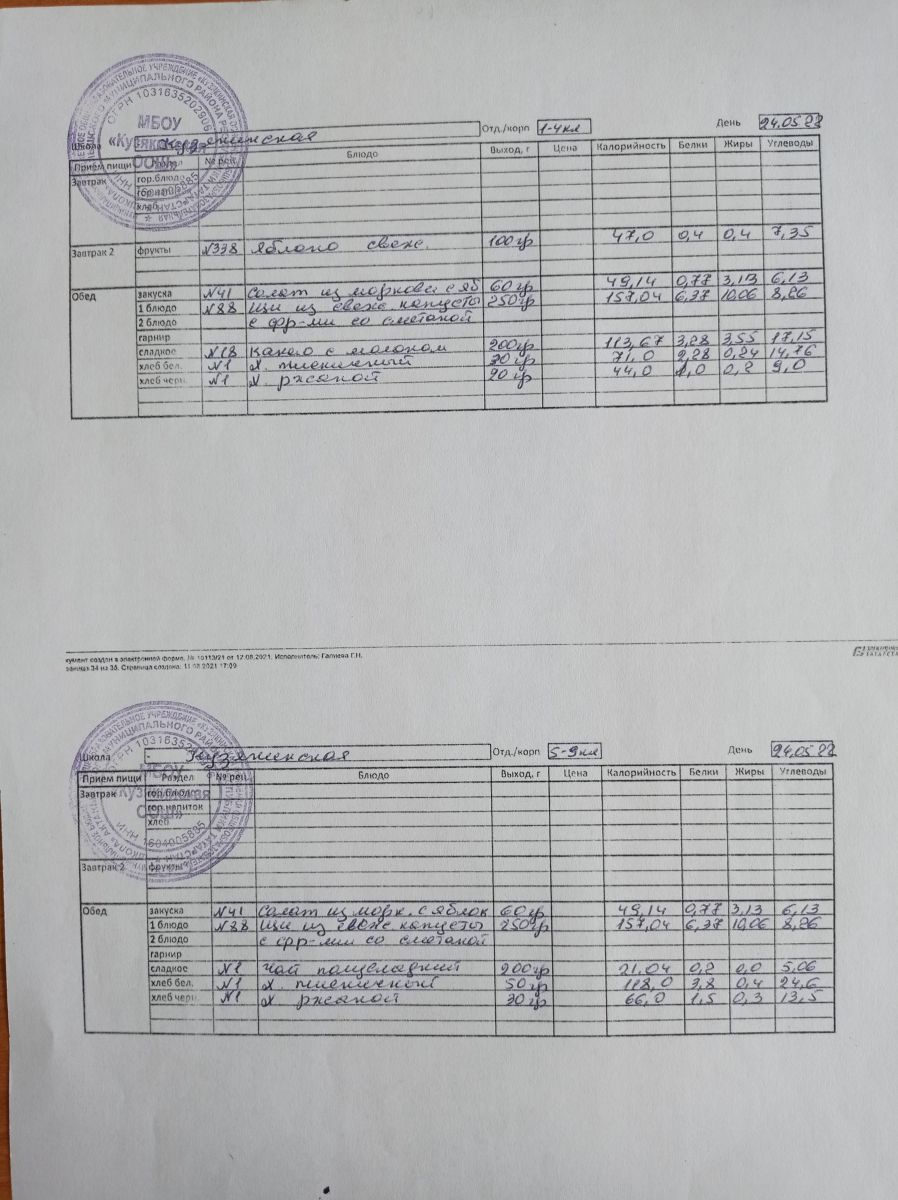 МБОУ
«Кузякинская
ООШ»
ОГРН 1031635202906
ИНН 1604005885
Школа Кузякинская Отд./корп 1-4кл День 24.05 22
Прием пищи Раздел № рец. Блюдо Выход, г Цена Калорийность Белки Жиры Углеводы
Завтрак гор.блюдо
гор.напиток
хлеб
Завтрак 2 фрукты №338 Яблоко свеж. 100гр 47,0 0,4 0,4 7,35
Обед закуска №41 Салат из моркови с яб 60гр 49,14 0,77 3,13 6,13
1 блюдо №88 Щи из свеж. капусты 250гр 157,04 6,37 10,06 8,26
2 блюдо с фр-ми со сметаной
гарнир
сладкое №18 Какао с молоком 200гр 113,67 3,28 3,55 17,15
хлеб бел. №1 Х. пшеничный 30гр 71,0 2,28 0,24 14,76
хлеб черн. №1 Х. ржаной 20гр 44,0 1,0 0,2 9,0
документ создан в электронной форме. № 10113/21 от 12.08.2021. Исполнитель: Галиева Г.Н.
Страница 34 из 35. Страница создана: 11.08.2021 17:09
Школа Кузякинская Отд./корп 5-9кл День 24.05 22
Прием пищи Раздел № рец. Блюдо Выход, г Цена Калорийность Белки Жиры Углеводы
МБОУ
«Кузякинская
ООШ»
ИНН 1604005885
Завтрак гор.блюдо
гор.напиток
хлеб
Завтрак 2 фрукты
Обед закуска №41 Салат из морк. с яблок 60гр 49,14 0,77 3,13 6,13
1 блюдо №88 Щи из свеж. капусты 250гр 157,04 6,37 10,06 8,26
2 блюдо с фр-ми со сметаной
гарнир
сладкое №1 Чай полусладкий 200гр 21.04 0,2 0,0 5,06
хлеб бел. №1 Х. пшеничный 50гр 118,0 3,8 0,4 24,6
хлеб черн. №1 Х ржаной 30гр 66,0 1,5 0,3 13,5